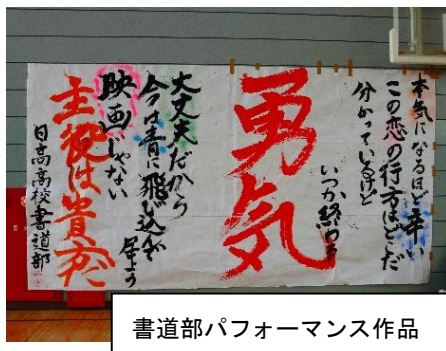 本気になるほど辛い
この恋の行方はどこだ
分かっているけど
いつか終わる
勇気
大丈夫だから
今は青に飛び込んで
居よう
映画じゃない
主役は貴方だ
日高高校書道部
書道部パフォーマンス作品